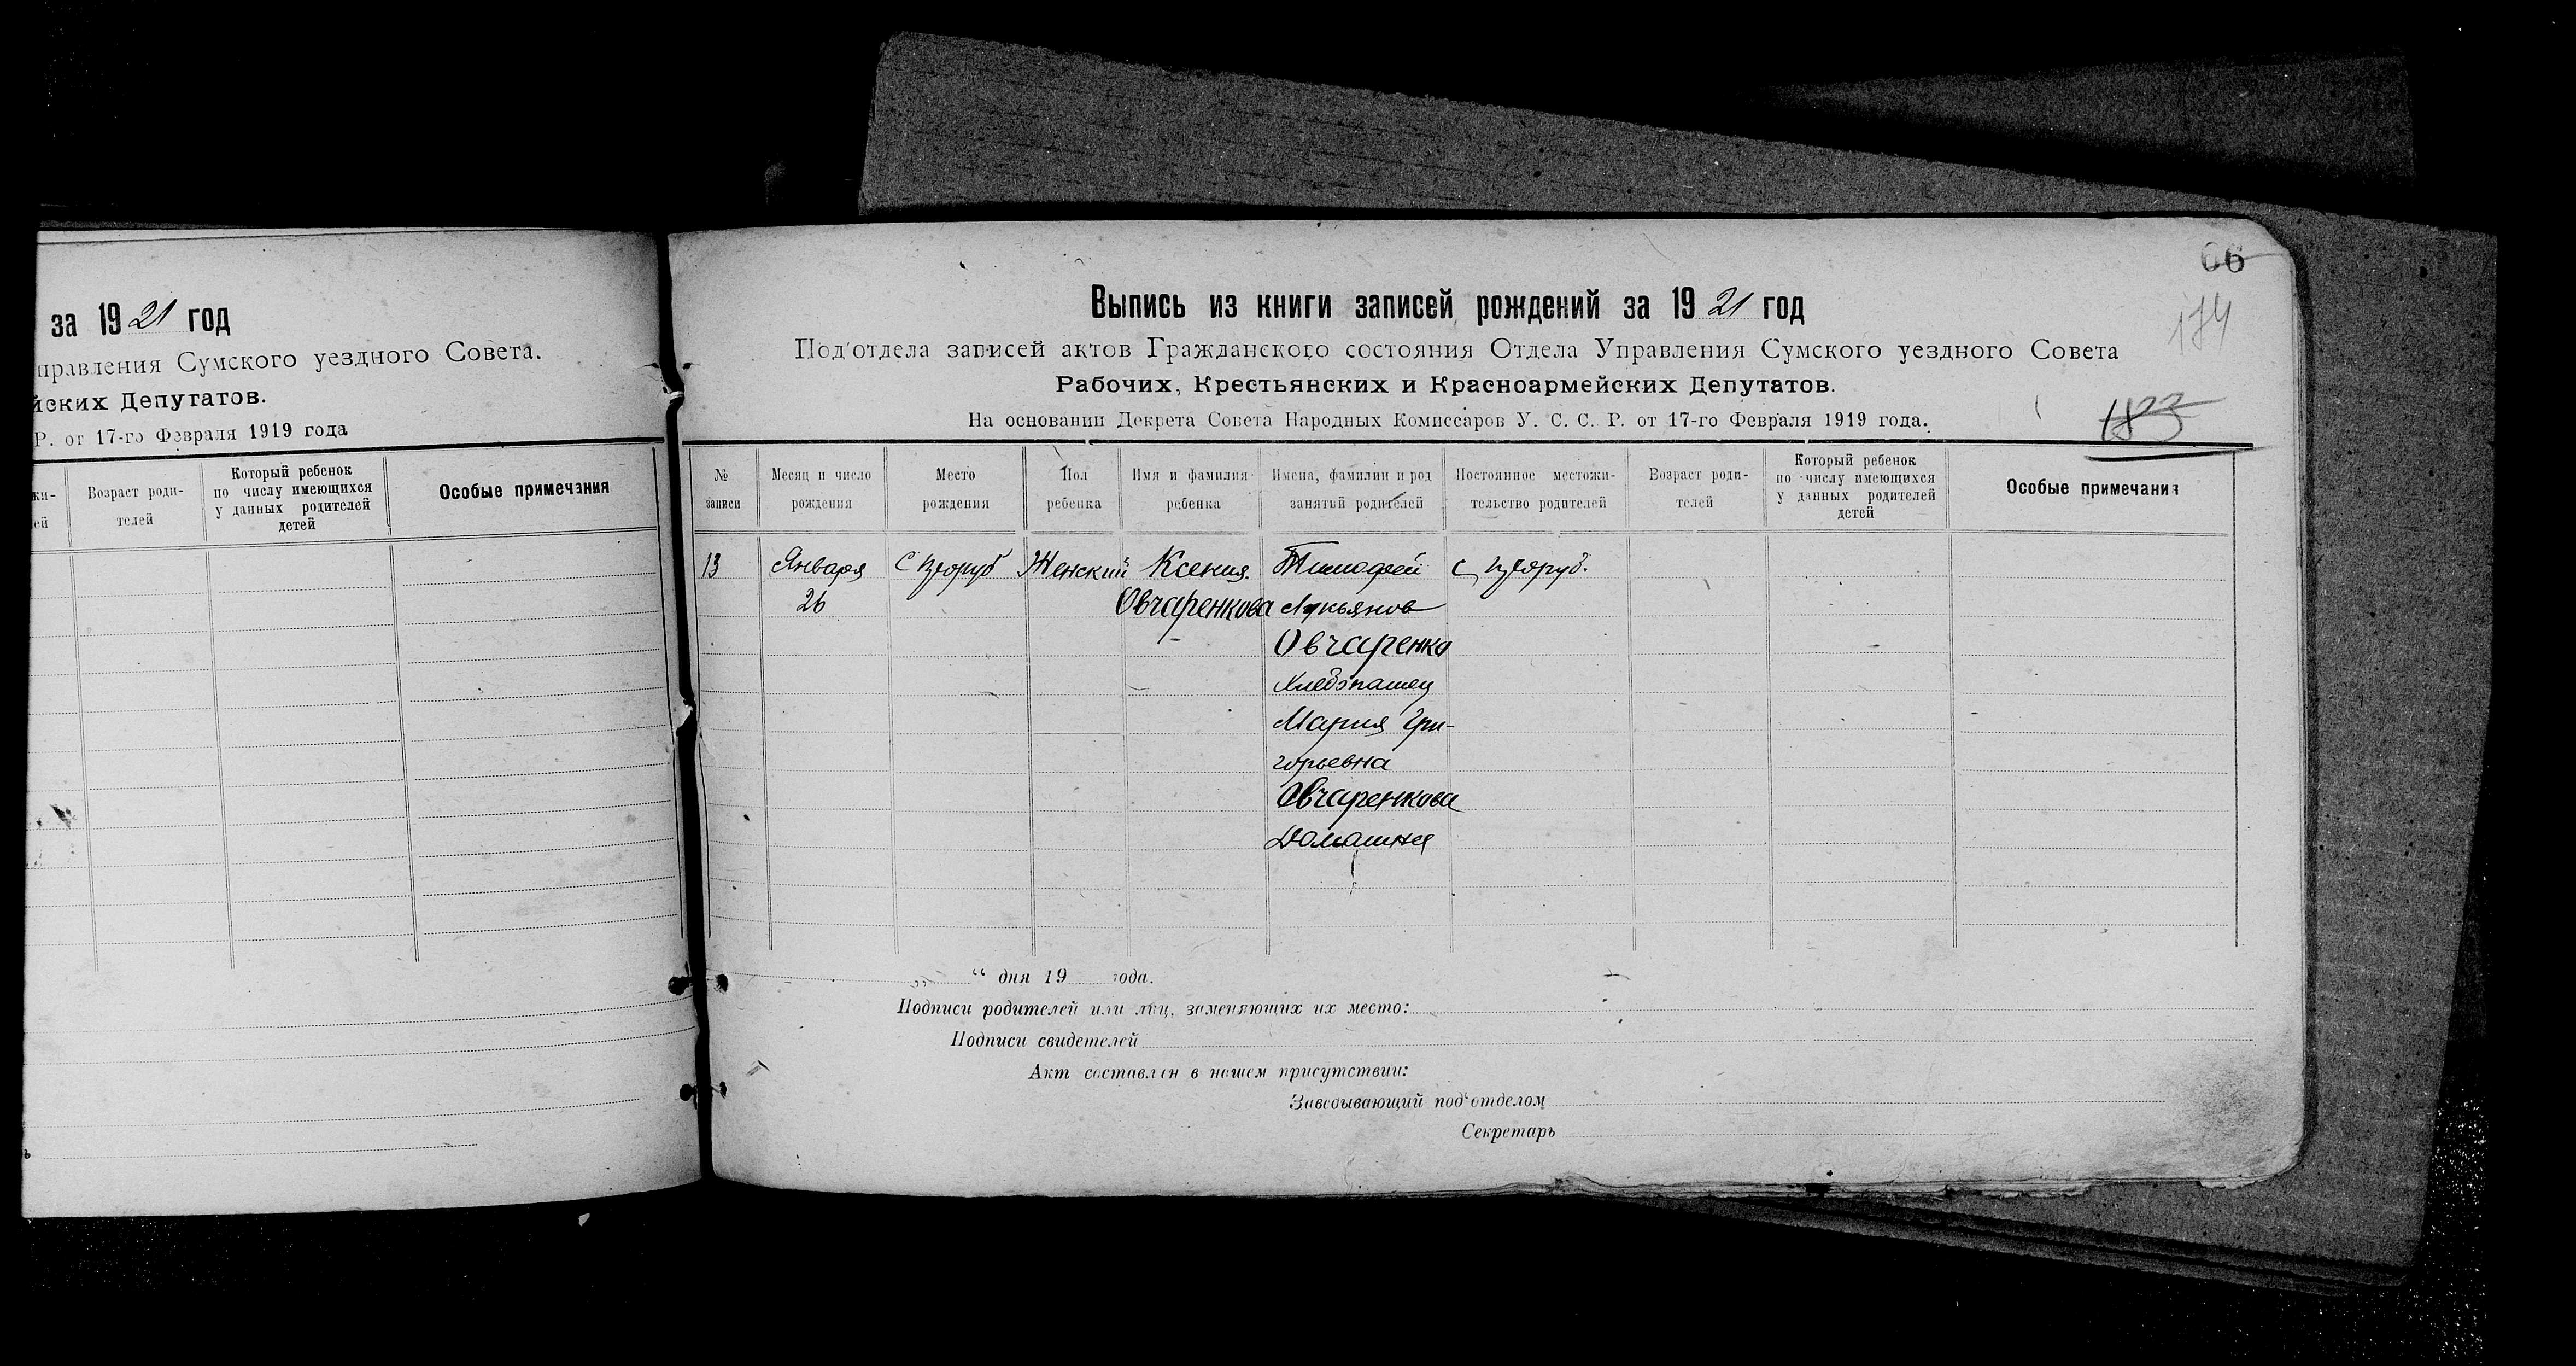 за 1921 год
правления Сумского уездного Совета.
йских Депутатов.
Р. от 17-го Февраля 1919 года
жи-
ей
Возраст роди-
телей
Который ребенок
по числу имеющихся
у данных родителей
детей
Особые примечания
66
174
183
Выпись из книги записей рождений за 1921 год
Под'отдела записей актов Гражданского состояния Отдела Управления Сумского уездного Совета
Рабочих, Крестьянских и Красноармейских Депутатов.
На основании Декрета Совета Народных Комиссаров У. С. С. Р. от 17-го Февраля 1919 года.
№
записи
Месяц и число
рождения
Место
рождения
Пол
ребенка
Имя и фамилия
ребенка
Имена, фамилии и род
занятий родителей
Постоянное местожи-
тельство родителей
Возраст роди-
телей
Который ребенок
по числу имеющихся
у данных родителей
детей
Особые примечания
13
Января
26
С
Женский
Ксения
Овчаренкова
Тимофей
Лукьянов
Овчаренко
Хлебопашец
Мария Гри-
горьевна
Овчаренкова
Домашняя
с
„ “ дня 19 года.
Подписи родителей или лиц, заменяющих их место:
Подписи свидетелей
Акт составлен в нашем присутствии:
Заведывающий под'отделом
Секретарь